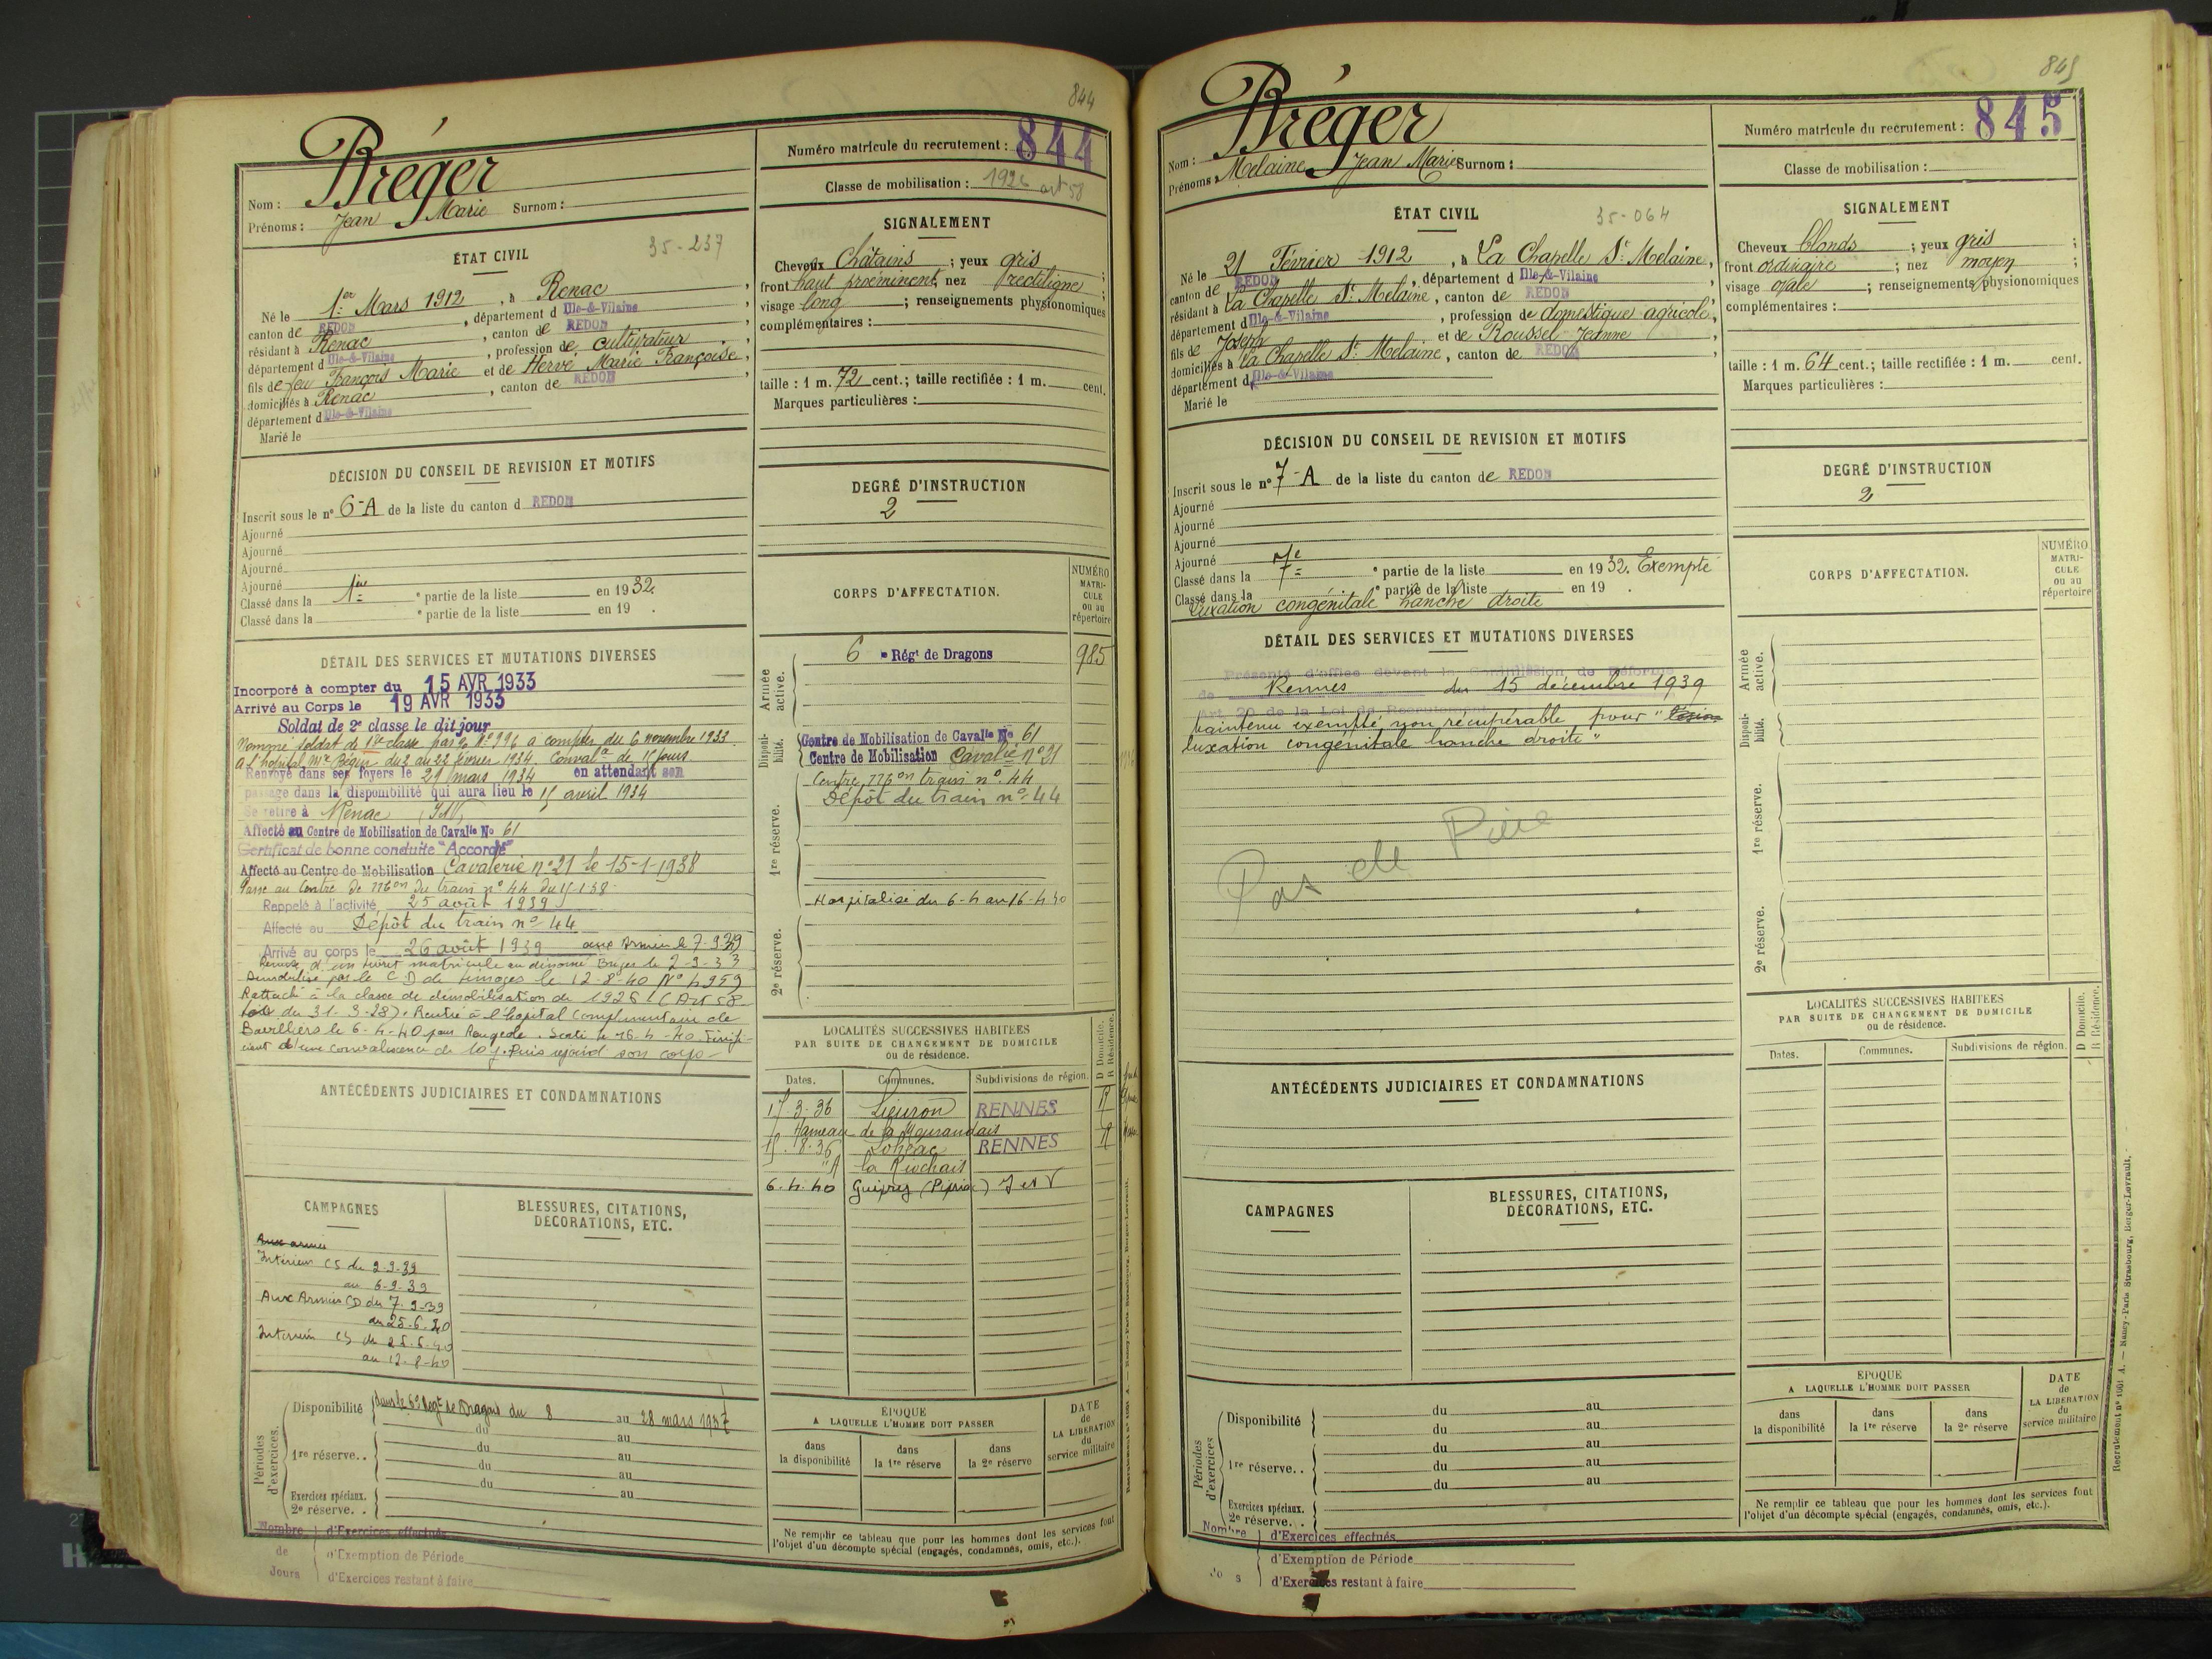 844
Bréger
Nom :
Prénoms : Jean Marie Surnom :
Numéro matricule du recrutement : 844
Classe de mobilisation : 1926 art 58
ÉTAT CIVIL
35-237
Né le 1er Mars 1912, à Renac,
canton de REDON, département d Ille-&-Vilaine
résidant à Renac, canton de REDON
département d Ille-&-Vilaine, profession de cultivateur,
fils de feu François Marie et de Hervé Marie Françoise,
domiciliés à Renac, canton de REDON,
département d Ille-&-Vilaine
Marié le
SIGNALEMENT
Cheveux Châtains ; yeux gris ;
front haut proéminent, nez rectiligne ;
visage long ; renseignements physionomiques
complémentaires :
taille : 1 m. 72 cent.; taille rectifiée : 1 m. cent.
Marques particulières :
DÉCISION DU CONSEIL DE REVISION ET MOTIFS
Inscrit sous le n° 6-A de la liste du canton d REDON
Ajourné
Ajourné
Ajourné
Ajourné
Classé dans la 1ère e partie de la liste en 1932.
Classé dans la e partie de la liste en 19 .
DEGRÉ D'INSTRUCTION
2
DÉTAIL DES SERVICES ET MUTATIONS DIVERSES
Incorporé à compter du 15 AVR 1933
Arrivé au Corps le 19 AVR 1933
Soldat de 2e classe le dit jour
Nommé soldat de 1re classe par o. n° 996 à compter du 6 novembre 1933.
A l'hôpital Mre Bégin du 2 au 22 février 1934. Conval. de 15 jours
Renvoyé dans ses foyers le 29 mars 1934 en attendant son
passage dans la disponibilité qui aura lieu le 15 avril 1934
Se retire à Renac (I&V)
Affecté au Centre de Mobilisation de Cavalle No 61
Certificat de bonne conduite "Accordé"
Affecté au Centre de Mobilisation Cavalerie n° 21 le 15-1-1938
Passé au Centre de Mon du train n° 44 du 15-1-38.
Rappelé à l'activité 25 août 1939
Affecté au Dépôt du train n° 44
Arrivé au corps le 26 août 1939 aux Armées le 7-9-39
Remise d'un livret matricule au dénommé Bréger le 2-9-33
Démobilisé par le C D de Limoges le 12-8-40 N° 4959
Rattaché à la classe de démobilisation de 1926 (Art 58
loi du 31-3-28). Rentré à l'hôpital complémentaire de
le 6-4-40 pour Rougeole. Sorti le 16-4-40
d'une convalescence de 10 j. Puis rejoind son corps
CORPS D'AFFECTATION.
NUMÉRO MATRICULE ou au répertoire
Armée active.
6 e Régt de Dragons 985
Disponibilité.
Centre de Mobilisation de Cavalle No 61
Centre de Mobilisation Cavalie n° 21
1re réserve.
Centre Mon train n° 44
Dépôt du train n° 44
Hospitalisé du 6-4 au 16-4-40
2e réserve.
ANTÉCÉDENTS JUDICIAIRES ET CONDAMNATIONS
LOCALITÉS SUCCESSIVES HABITÉES
PAR SUITE DE CHANGEMENT DE DOMICILE
ou de résidence.
Dates. Communes. Subdivisions de région. D Domicile. R Résidence.
15-3-36 Lieuron RENNES R
Hameau de la
15-8-36 Lohéac RENNES R
la Riochais
6-4-40 Guipry (Pipriac) I et V
CAMPAGNES
Aux armées
Intérieur CS du 2-9-39
au 6-9-39
Aux Armées CD du 7-9-39
au 25-6-40
Intérieur CS du 26-6-40
au 12-8-40
BLESSURES, CITATIONS,
DÉCORATIONS, ETC.
Périodes d'exercices.
Disponibilité dans le 6e Régt de Dragons du 8 au 28 mars 1937
du au
1re réserve.. du au
du au
du au
Exercices spéciaux.
2e réserve. .
Nombre de Jours
d'Exercices effectués
d'Exemption de Période
d'Exercices restant à faire
ÉPOQUE
A LAQUELLE L'HOMME DOIT PASSER
dans la disponibilité dans la 1re réserve dans la 2e réserve
DATE de LA LIBÉRATION du service militaire
Ne remplir ce tableau que pour les hommes dont les services font
l'objet d'un décompte spécial (engagés, condamnés, omis, etc.).
845
Bréger
Nom :
Prénoms : Melaine Jean Marie Surnom :
Numéro matricule du recrutement : 845
Classe de mobilisation :
ÉTAT CIVIL
35-064
Né le 21 Février 1912, à La Chapelle St Melaine,
canton de REDON, département d Ille-&-Vilaine
résidant à La Chapelle St Melaine, canton de REDON
département d Ille-&-Vilaine, profession de domestique agricole,
fils de Joseph et de Roussel Jeanne
domiciliés à La Chapelle St Melaine, canton de REDON,
département d Ille-&-Vilaine
Marié le
SIGNALEMENT
Cheveux blonds ; yeux gris ;
front ordinaire ; nez moyen ;
visage ovale ; renseignements physionomiques
complémentaires :
taille : 1 m. 64 cent.; taille rectifiée : 1 m. cent.
Marques particulières :
DÉCISION DU CONSEIL DE REVISION ET MOTIFS
Inscrit sous le n° 7-A de la liste du canton de REDON
Ajourné
Ajourné
Ajourné
Ajourné
Classé dans la 7e e partie de la liste en 1932. Exempté
Classé dans la e partie de la liste en 19 .
Luxation congénitale hanche droite
DEGRÉ D'INSTRUCTION
2
DÉTAIL DES SERVICES ET MUTATIONS DIVERSES
Présenté d'office devant la Commission de Réforme
de Rennes du 15 décembre 1939
Art 20 de la Loi de Recrutement
maintenu exempté non récupérable pour "lésion
luxation congénitale hanche droite"
Pas de Pièce
CORPS D'AFFECTATION.
NUMÉRO MATRICULE ou au répertoire
Armée active.
Disponibilité.
1re réserve.
2e réserve.
ANTÉCÉDENTS JUDICIAIRES ET CONDAMNATIONS
LOCALITÉS SUCCESSIVES HABITÉES
PAR SUITE DE CHANGEMENT DE DOMICILE
ou de résidence.
Dates. Communes. Subdivisions de région. D Domicile. R Résidence.
CAMPAGNES
BLESSURES, CITATIONS,
DÉCORATIONS, ETC.
Périodes d'exercices
Disponibilité du au
du au
1re réserve. . du au
du au
du au
Exercices spéciaux.
2e réserve. .
Nombre
d'Exercices effectués
d'Exemption de Période
d'Exercices restant à faire
ÉPOQUE
A LAQUELLE L'HOMME DOIT PASSER
dans la disponibilité dans la 1re réserve dans la 2e réserve
DATE de LA LIBÉRATION du service militaire
Ne remplir ce tableau que pour les hommes dont les services font
l'objet d'un décompte spécial (engagés, condamnés, omis, etc.).
Recrutement n° 1001 A. — Nancy-Paris-Strasbourg, Berger-Levrault.